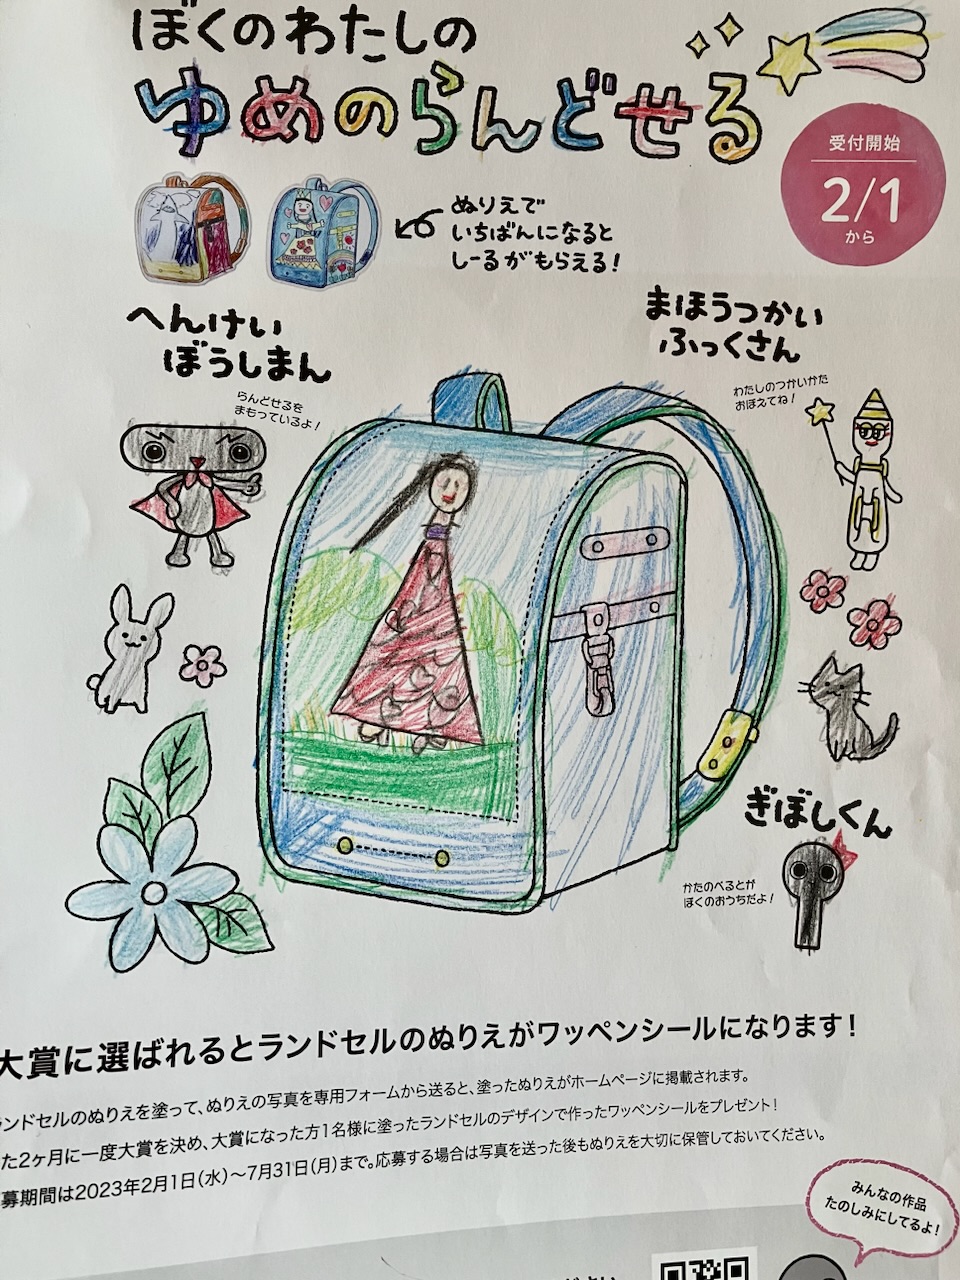 ぼくのわたしの
ゆめのらんどせる
受付開始
2/1
から
ぬりえで
いちばんになると
しーるがもらえる!
へんけい
ぼうしまん
らんどせるを
まもっているよ!
まほうつかい
ふっくさん
わたしのつかいかた
おぼえてね!
ぎぼしくん
かたのべるとが
ぼくのおうちだよ!
大賞に選ばれるとランドセルのぬりえがワッペンシールになります!
ランドセルのぬりえを塗って、ぬりえの写真を専用フォームから送ると、塗ったぬりえがホームページに掲載されます。
た2ヶ月に一度大賞を決め、大賞になった方1名様に塗ったランドセルのデザインで作ったワッペンシールをプレゼント!
募期間は2023年2月1日(水)~7月31日(月)まで。応募する場合は写真を送った後もぬりえを大切に保管しておいてください。
みんなの作品
たのしみにしてるよ!